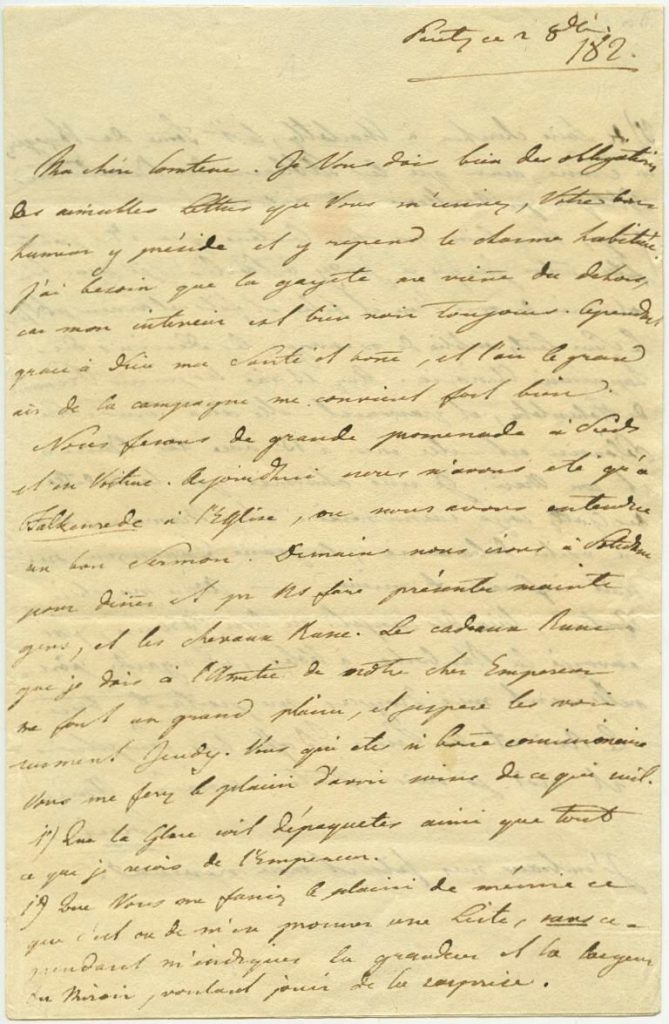 Paretz ce 2 8bre
180.
Ma chère Comtesse. Je Vous dois bien des obligations
des aimables lettres que Vous m'ecrivez, Votre bonne
humeur y préside et y repend le charme habituel.
J'ai besoin que la gayete me viene du dehors,
car mon interieur est bien noir toujours. Cependant
grace à Dieu ma Santé est bone, et l'air le grand
air de la campagne me convient fort bien.
Nous fesons de grande promenade à Pieds
et en Voiture. Aujourdhui nous n'avons eté qu'à
Falkenrede à l'Eglise, ou nous avons entendu
un bon Sermon. Demain nous irons à Potsdam
pour diner et pr ns faire présenter mainte
gens, et les chevaux Russe. Les cadeaux Russe
que je dois à l'Amitie de notre cher Empereur
me font un grand plaisir, et j'espere les voir
surement Jeudy. Vous qui ete si bone comissionaire
Vous me ferez le plaisir d'avoir soins de ce qui suit.
1º) Que la Glace soit dépaquetes ainsi que tout
ce que je recois de l'Empereur.
2º) Que Vous me fassiez le plaisir de m'ecrire ce
que c'est ou de m'en procurer une Liste, sans ce-
pendant m'indiquer la grandeur et la largeur
du Miroir, voulant jouir de la surprise.